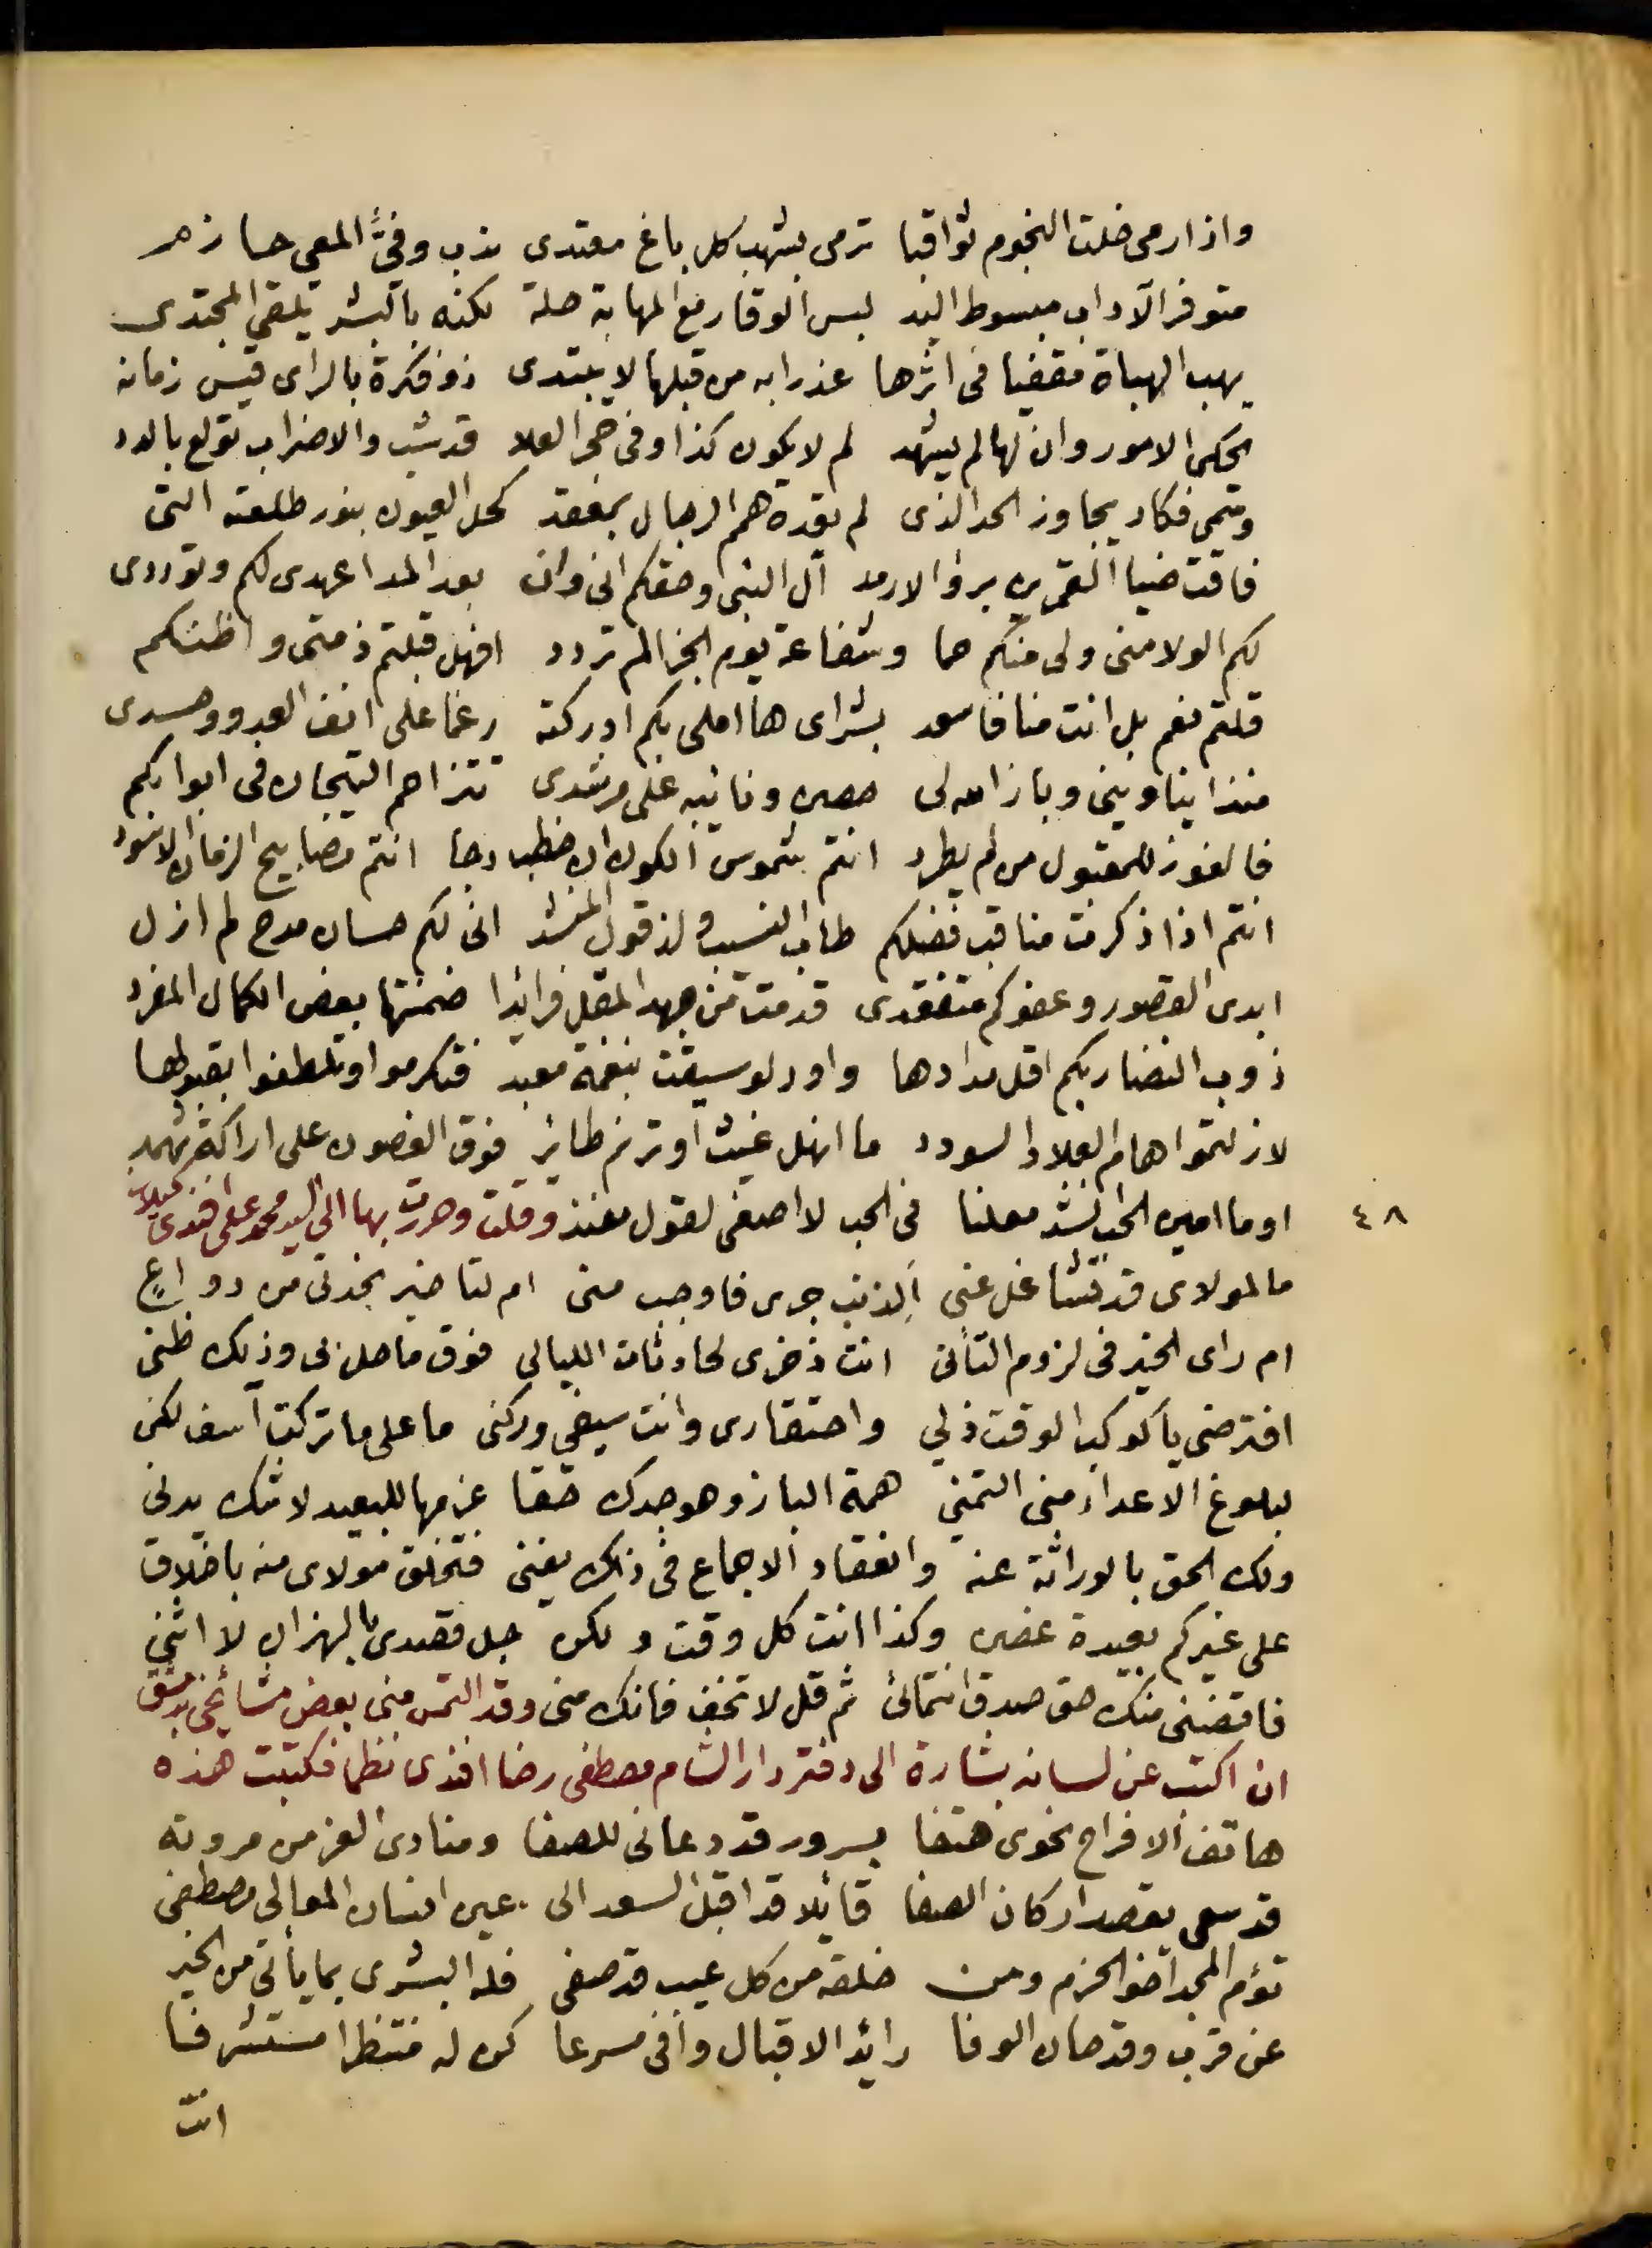 واذا رمى خلت النجوم ثواقبا ترمى بشهب كل باغ معتدى ندب وفىّ المعى حازم
متوفر الآداب مبسوط اليد لبس الوقار مع المهابة حلة لكنه بالبشر يلقى المجتدى
يهب الهباة مقفيا فى اثرها عذرا به من قبلها لا يبتدى ذو فكرة بالراى قيس زمانه
يحكى الامور وان لها لم يشهد لم لا يكون كذا وفى حجر العلا قد شب والاضراب تولع بالدد
وسمى فكاد يجاوز الحد الذى لم تقدة همم الرجال بمقعد كحل العيون بنور طلعته التى
فاقت ضيا القمرين برؤ الارمد آل النبى وحقكم انى وان بعد المدا عهدى لكم وتوددى
لكم الولا منى ولى منكم حما وشفاعة يوم الجزا لم تردد افهل قبلتم ذمتى واظنكم
قلتم نعم بل انت منا فاسعد بشراى ها املى بكم ادركته رغما على انف العدو وحسدى
منذا يناوينى وباز الله لى حصن ونائبه على مرشدى تتزاحم التيجان فى ابوابكم
فالفوز للمقبول من لم يطرد انتم شموس الكون ان خطب دجا انتم مصابيح الزمان الاسود
انتم اذا ذكرت مناقب فضلكم طاب النسيب ولذ قول المنشد انى لكم حسان مدح لم ازل
ابدى القصور وعفوكم متفقدى قدمت من جهد المقل فرائدا ضمنتها بعض الكمال المفرد
ذوب النضار بكم اقل مدادها واود لو سيقت بنغمة معبد فتكرموا وتلطفوا بقبولها
لازلتموا هام العلا والسودد ما انهل غيث او ترنم طائر فوق الغصون على اراكة ثهمد
او ما امين الجندى انشد معلنا فى الحب لا اصغى لقول مفند وقلت وحررت بها الى السيد محمد على افندى كيلانى
٤٨
ما لمولاى قد تشاغل عنى ألذنب جرى فاوجب منى ام لتاخير نجدتى من دواعٍ
ام راى الخير فى لزوم التأنى انت ذخرى لحادثات الليالى فوق ما حل بى وذيك ظنى
افترضى يا كوكب الوقت ذلي واحتقارى وانت سيفي وركنى ما على ما تركت آسف لكن
لبلوغ الاعداء منى التمني همة الباز وهو جدك حقا عزمها للبعيد لا شك يدنى
ولك الحق بالوراثة عنه وانعقاد الاجماع فى ذلك يغنى فتخلق مولاى منه باخلاق
على غيركم بعيدة غصن وكذا انت كل وقت ولكن جل قصدى بالهزان لا انثني
فاقضنى منك حق صدق انتمائى ثم قل لا تخف فانك منى وقد التمس منى بعض مشائخى بدمشق
ان اكتب عن لسانه بشارة الى دفتر دار الشام مصطفى رضا افندى نظما فكتبت هذه
هاتف الافراح نحوى هتفا بسرور قد دعانى للصفا ومنادى العز من مروته
قد سعى يقصد اركان الصفا قائلا قد اقبل السعد الى عين انسان المعالى مصطفى
توءم المجد اخو الحزم ومن خلقه من كل عيب قد صفى فله البشرى بما يأتى من الخير
عن قرب وقد حان الوفا رائد الاقبال وافى مسرعا كن له منتظرا مستشرفا
انت